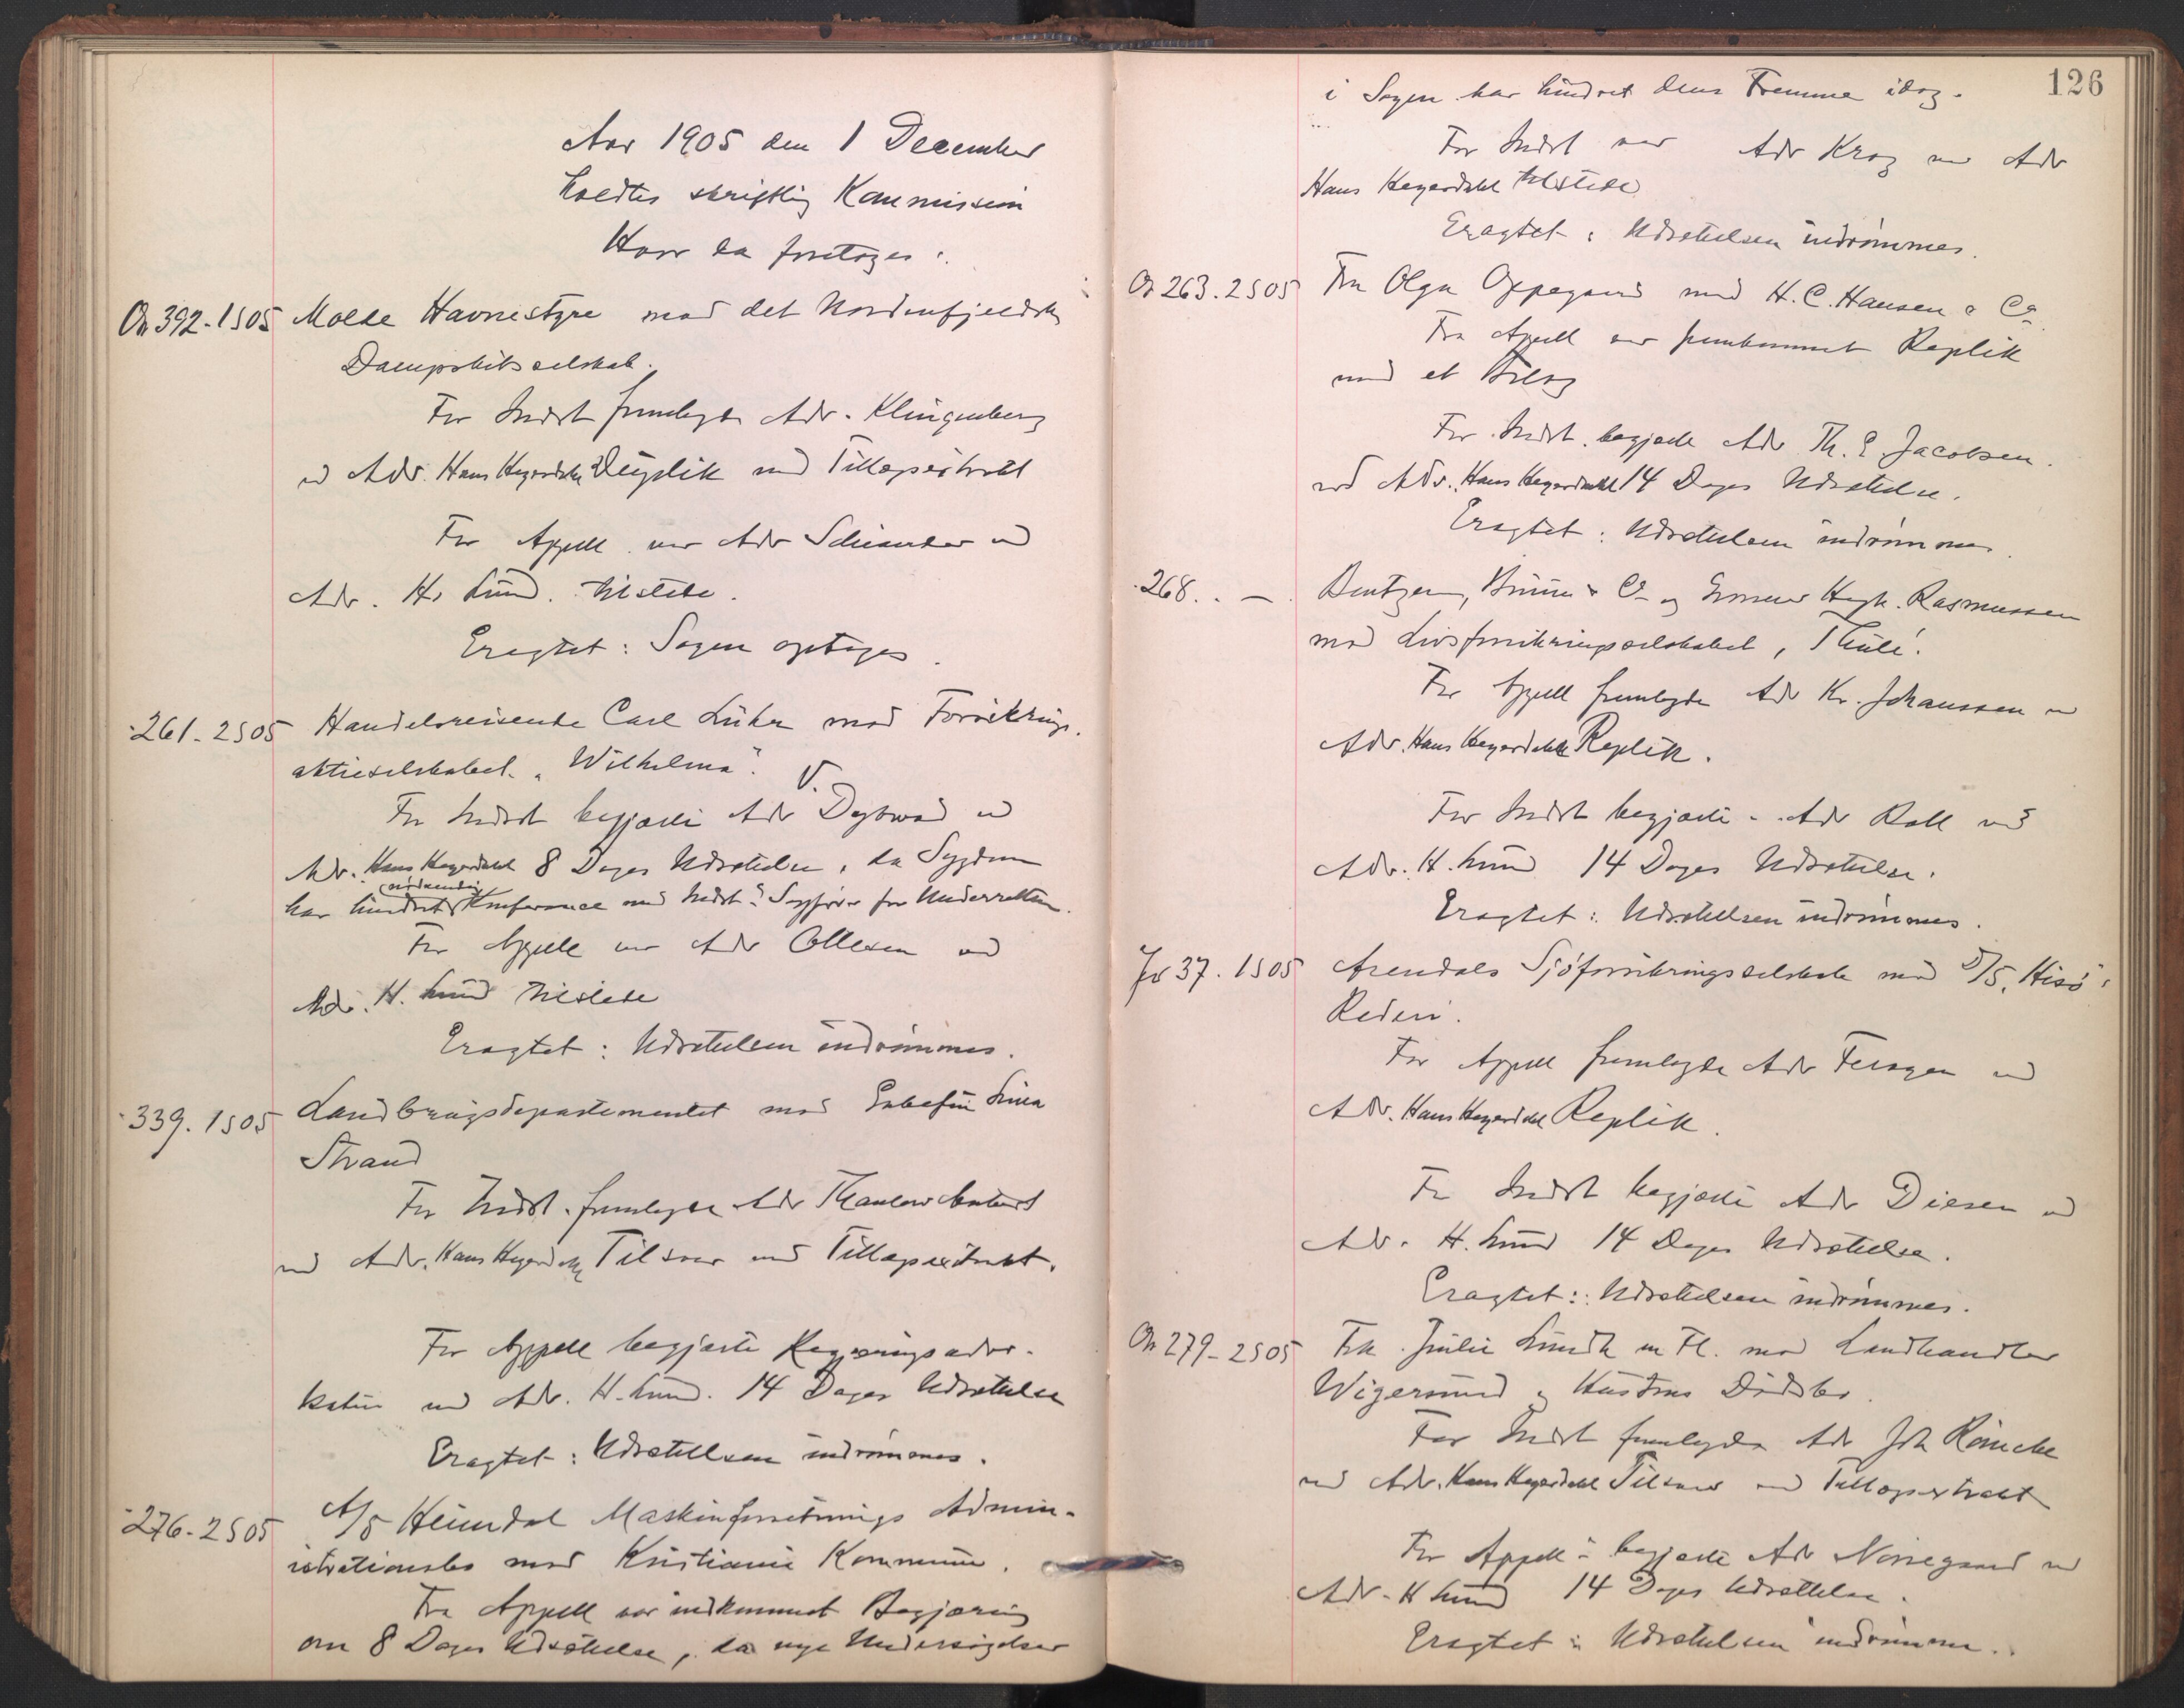 Aar 1905 den 1 December
holdtes skriftlig Kommission
Hvor da foretoges:
On 392-1S05 Molde Havnestyre mod det Nordenfjeldske
Dampskibsselskab.
For Indst fremlagde Adv. Klingenberg
ved Adv. Hans Heyerdahl Duplik med Tillægsextrakt
For Appell var Adv Schiander ved
Adv. H. Lund. tilstede.
Eragtet: Sagen optages.
-261-2S05 Handelsreisende Carl Lühr mod Forsikrings-
aktieselskabet "Wilhelma".
For Indst begjærte Adv V. Dybwad ved
Adv. Hans Heyerdahl 8 Dages Udsættelse, da Sygdom
har hindret nødvendig Konferance med Indst's Sagfører for Underretten.
For Appell var Adv Ollesen ved
Adv. H. Lund tilstede
Eragtet: Udsættelsen indrømmes.
-339.1S05 Landbrugsdepartementet mod Enkefru Lina
Strand
For Indst. fremlagde Adv Thaulow
ved Adv. Hans Heyerdahl Tilsvar med Tillægsextrakt.
For Appell begjærte Regjeringsadvo-
katen ved Adv. H. Lund. 14 Dages Udsættelse
Eragtet: Udsættelsen indrømmes.
-276-2S05 A/S Heimdal Maskinforretnings Admin-
istrationsbo mod Kristiania Kommune.
Fra Appell var indkommet Begjæring
om 8 Dages Udsættelse, da nye Undersøgelser
126
i Sagen har hindret dens Fremme idag.
For Indst var Adv Krag ved Adv
Hans Heyerdahl tilstede
Eragtet: Udsættelsen indrømmes.
On 263.2S05 Fru Olga Oppegaard mod H. C. Hansen & Co
Fra Appell var fremkommet Replik
med et Bilag
For Indst. begjærte Adv Th. E. Jacobsen
ved Adv. Hans Heyerdahl 14 Dages Udsættelse.
Eragtet: Udsættelsen indrømmes.
-268. - Bentzen, & Co og Hagb. Rasmussen
mod Livsforsikringsselskabet "Thule".
For Appell fremlagde Adv Kr. Johanssen ved
Adv. Hans Heyerdahl Replik.
For Indst begjærte Adv Roll ved
Adv. H. Lund 14 Dages Udsættelse.
Eragtet: Udsættelsen indrømmes.
Fr 37.1S05 Arendals Sjøforsikringsselskab mod D/S "Hisø"s
Rederi.
For Appell fremlagde Adv Feragen ved
Adv. Hans Heyerdahl Replik.
For Indst begjærte Adv Diesen ved
Adv. H. Lund 14 Dages Udsættelse.
Eragtet: Udsættelsen indrømmes.
On 279-2S05 Frk. Julie Lundh m Fl. mod Landhandler
Wigersund og Hustrus Dødsbo.
For Indst fremlagde Adv Joh Röncke
ved Adv. Hans Heyerdahl Tilsvar med Tillægsextrakt
For Appell begjærte Adv Nørregaard ved
Adv. H Lund 14 Dages Udsættelse.
Eragtet: Udsættelsen indrømmes.